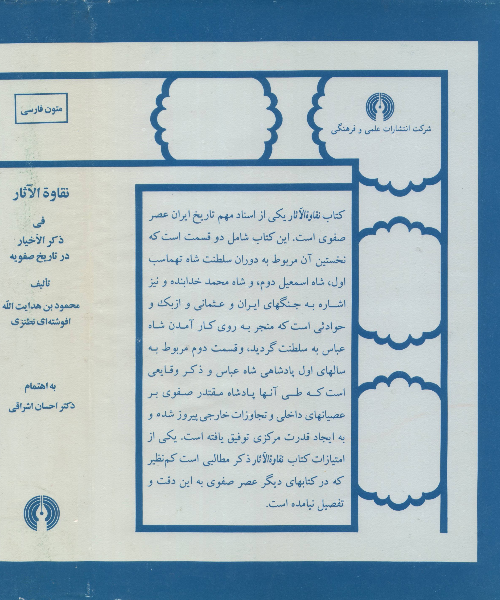 شرکت انتشارات علمی و فرهنگی
کتاب نقاوة‌الآثار یکی از اسناد مهم تاریخ ایران عصر
صفوی است. این کتاب شامل دو قسمت است که
نخستین آن مربوط به دوران سلطنت شاه تهماسب
اول، شاه اسمعیل دوم، و شاه محمد خدابنده و نیز
اشاره به جنگهای ایران و عثمانی و ازبک و
حوادثی است که منجر به روی کار آمدن شاه
عباس به سلطنت گردید، و قسمت دوم مربوط به
سالهای اول پادشاهی شاه عباس و ذکر وقایعی
است که طی آنها پادشاه مقتدر صفوی بر
عصیانهای داخلی و تجاوزات خارجی پیروز شده و
به ایجاد قدرت مرکزی توفیق یافته است. یکی از
امتیازات کتاب نقاوة‌الآثار ذکر مطالبی است کم‌نظیر
که در کتابهای دیگر عصر صفوی به این دقت و
تفصیل نیامده است.
متون فارسی
نقاوة الآثار
فی
ذکر الأخیار
در تاریخ صفویه
تألیف
محمود بن هدایت الله
افوشته‌ای نطنزی
به اهتمام
دکتر احسان اشراقی